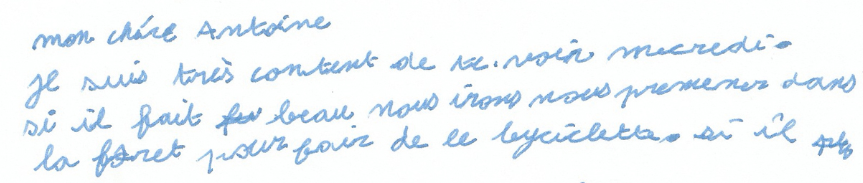 mon chère Antoine
je suis très content de te voir mecredi.
si il fait beau nous irons nous premener dans
la foret pour fair de le byciclette. si il